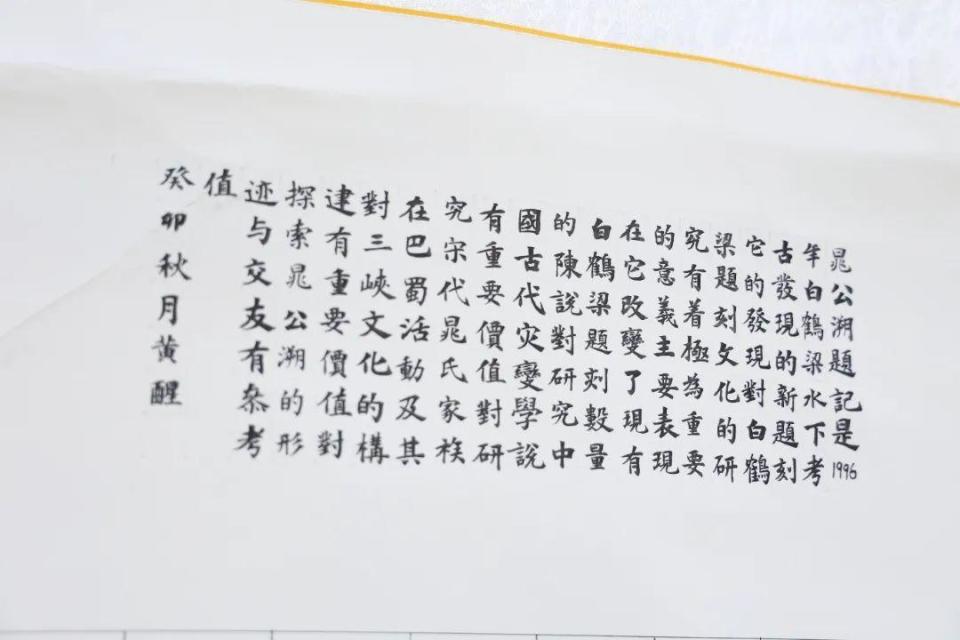 晁公溯題記是1996
年白鶴梁水下考
古發現的新題刻
它的發現對白鶴
梁題刻文化的研
究有着極為重要
的意義主要表現
在它改變了現有
白鶴梁題刻數量
的陳說對研究中
國古代灾變學說
有重要價值對研
究宋代晁氏家族
在巴蜀活動及其
對三峽文化的構
建有重要價值對
探索晁公溯的形
迹与交友有叅考
值
癸卯秋月黄醒